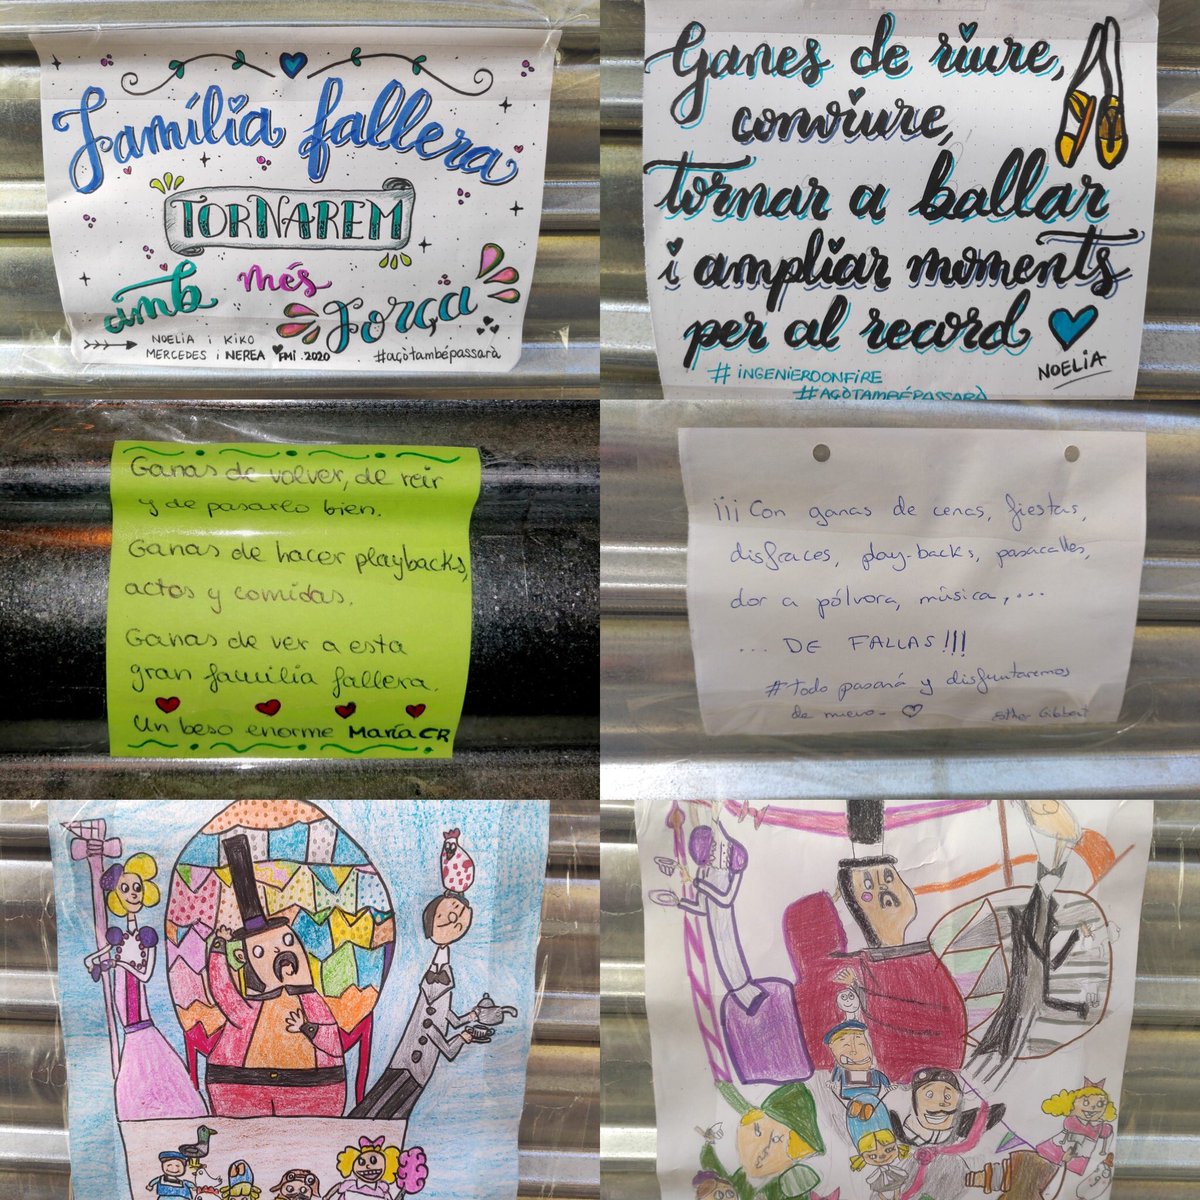 Família fallera
TORNAREM
amb més
Força
NOELIA i KIKO
MERCEDES i NEREA FMI.2020
#açòtambépassarà
Ganes de riure,
conviure,
tornar a ballar
i ampliar moments
per al record
NOELIA
#INGENIERDONFIRE
#AÇÒTAMBÉPASSARÀ
Ganas de volver, de reir
y de pasarlo bien.
Ganas de hacer playbacks,
actos y comidas.
Ganas de ver a esta
gran familia fallera.
Un beso enorme María CR
¡¡¡Con ganas de cenas, fiestas,
disfraces, play-backs, pasacalles,
olor a pólvora, música,...
... DE FALLAS!!!
#todo pasará y disfrutaremos
de nuevo.
Esther